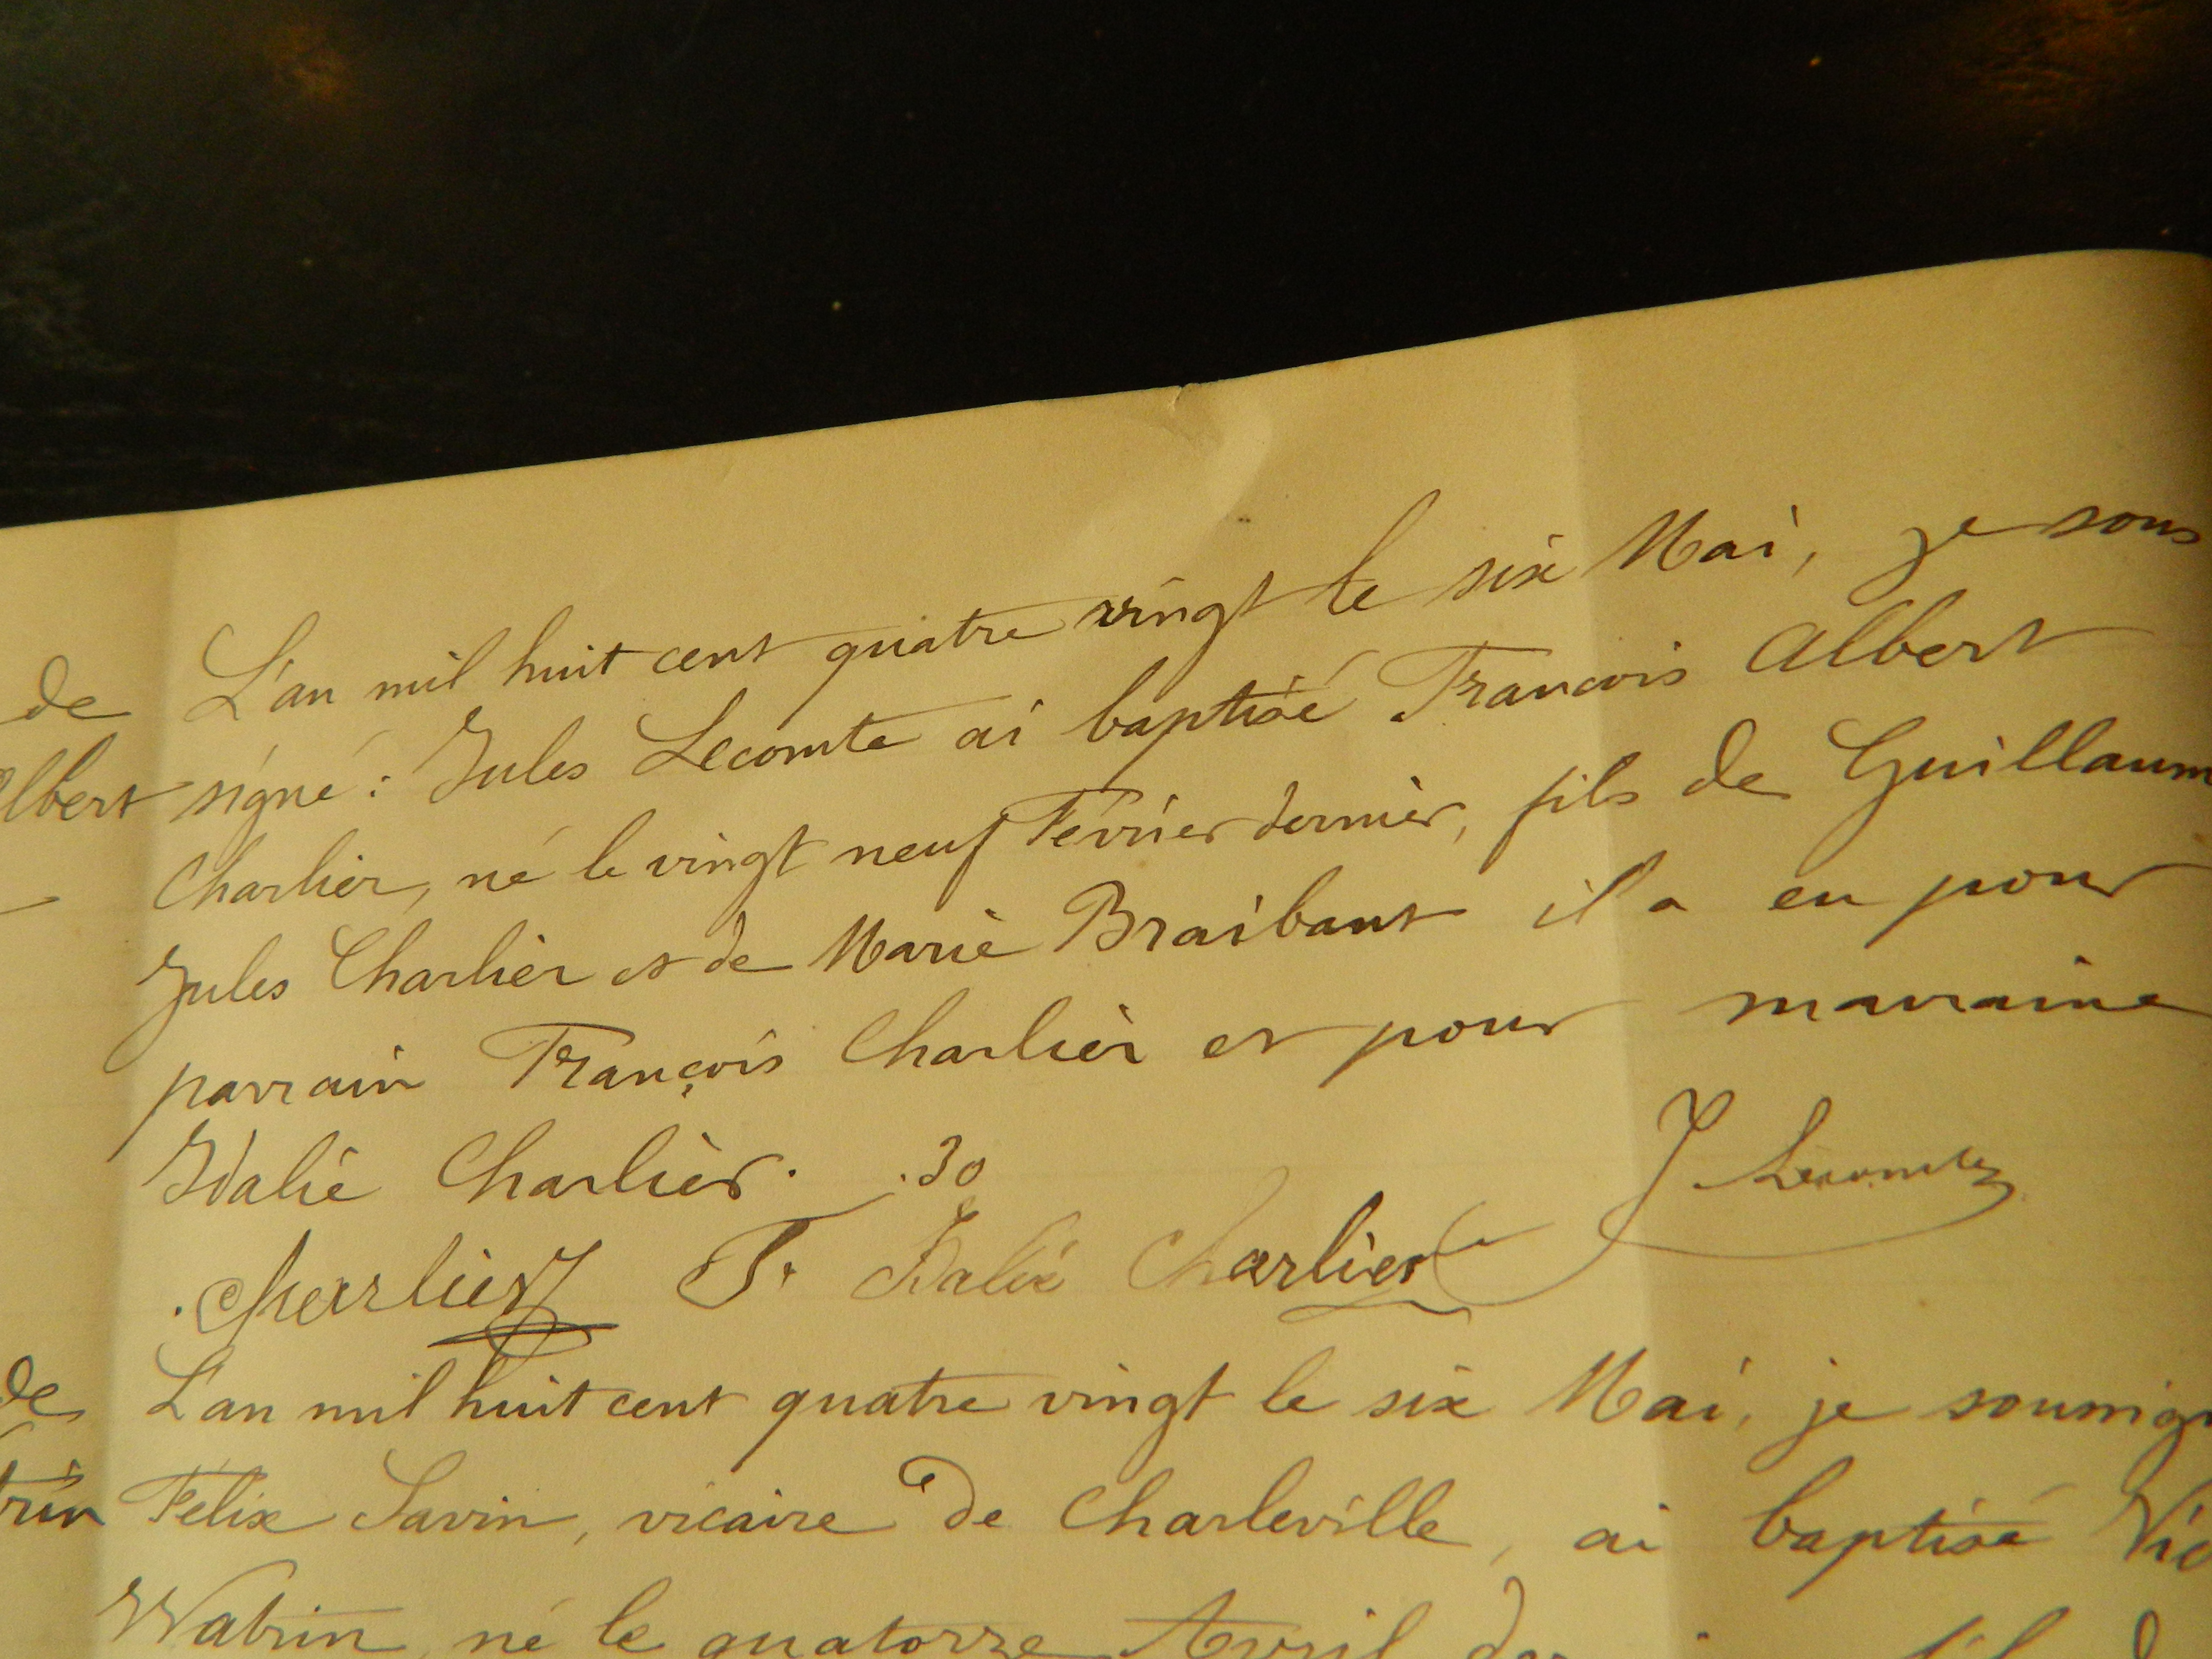 de L'an mil huit cent quatre vingt le six Mai, je sous
lbert signé : Jules Lecomte ai baptisé Francois Albert
Charlier, né le vingt neuf Février dernier, fils de Guillaum
Jules Charlier et de Marie Braibant il a eu pour
parrain François Charlier et pour marraine
Idalie Charlier.
.30
J Lecomte
Charlier F. Idalie Charlier
de L'an mil huit cent quatre vingt le six Mai, je soussign
trin Félix Savin, vicaire de Charleville, ai baptisé Vic
Watrin, né le quatorze Avril